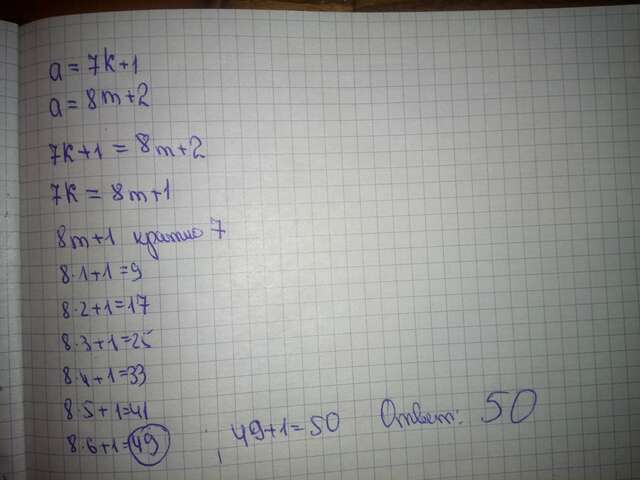 a = 7k+1
a = 8m+2
7k+1 = 8m+2
7k = 8m+1
8m+1 кратно 7
8·1+1=9
8·2+1=17
8·3+1=25
8·4+1=33
8·5+1=41
8·6+1=49
49+1=50 Ответ: 50